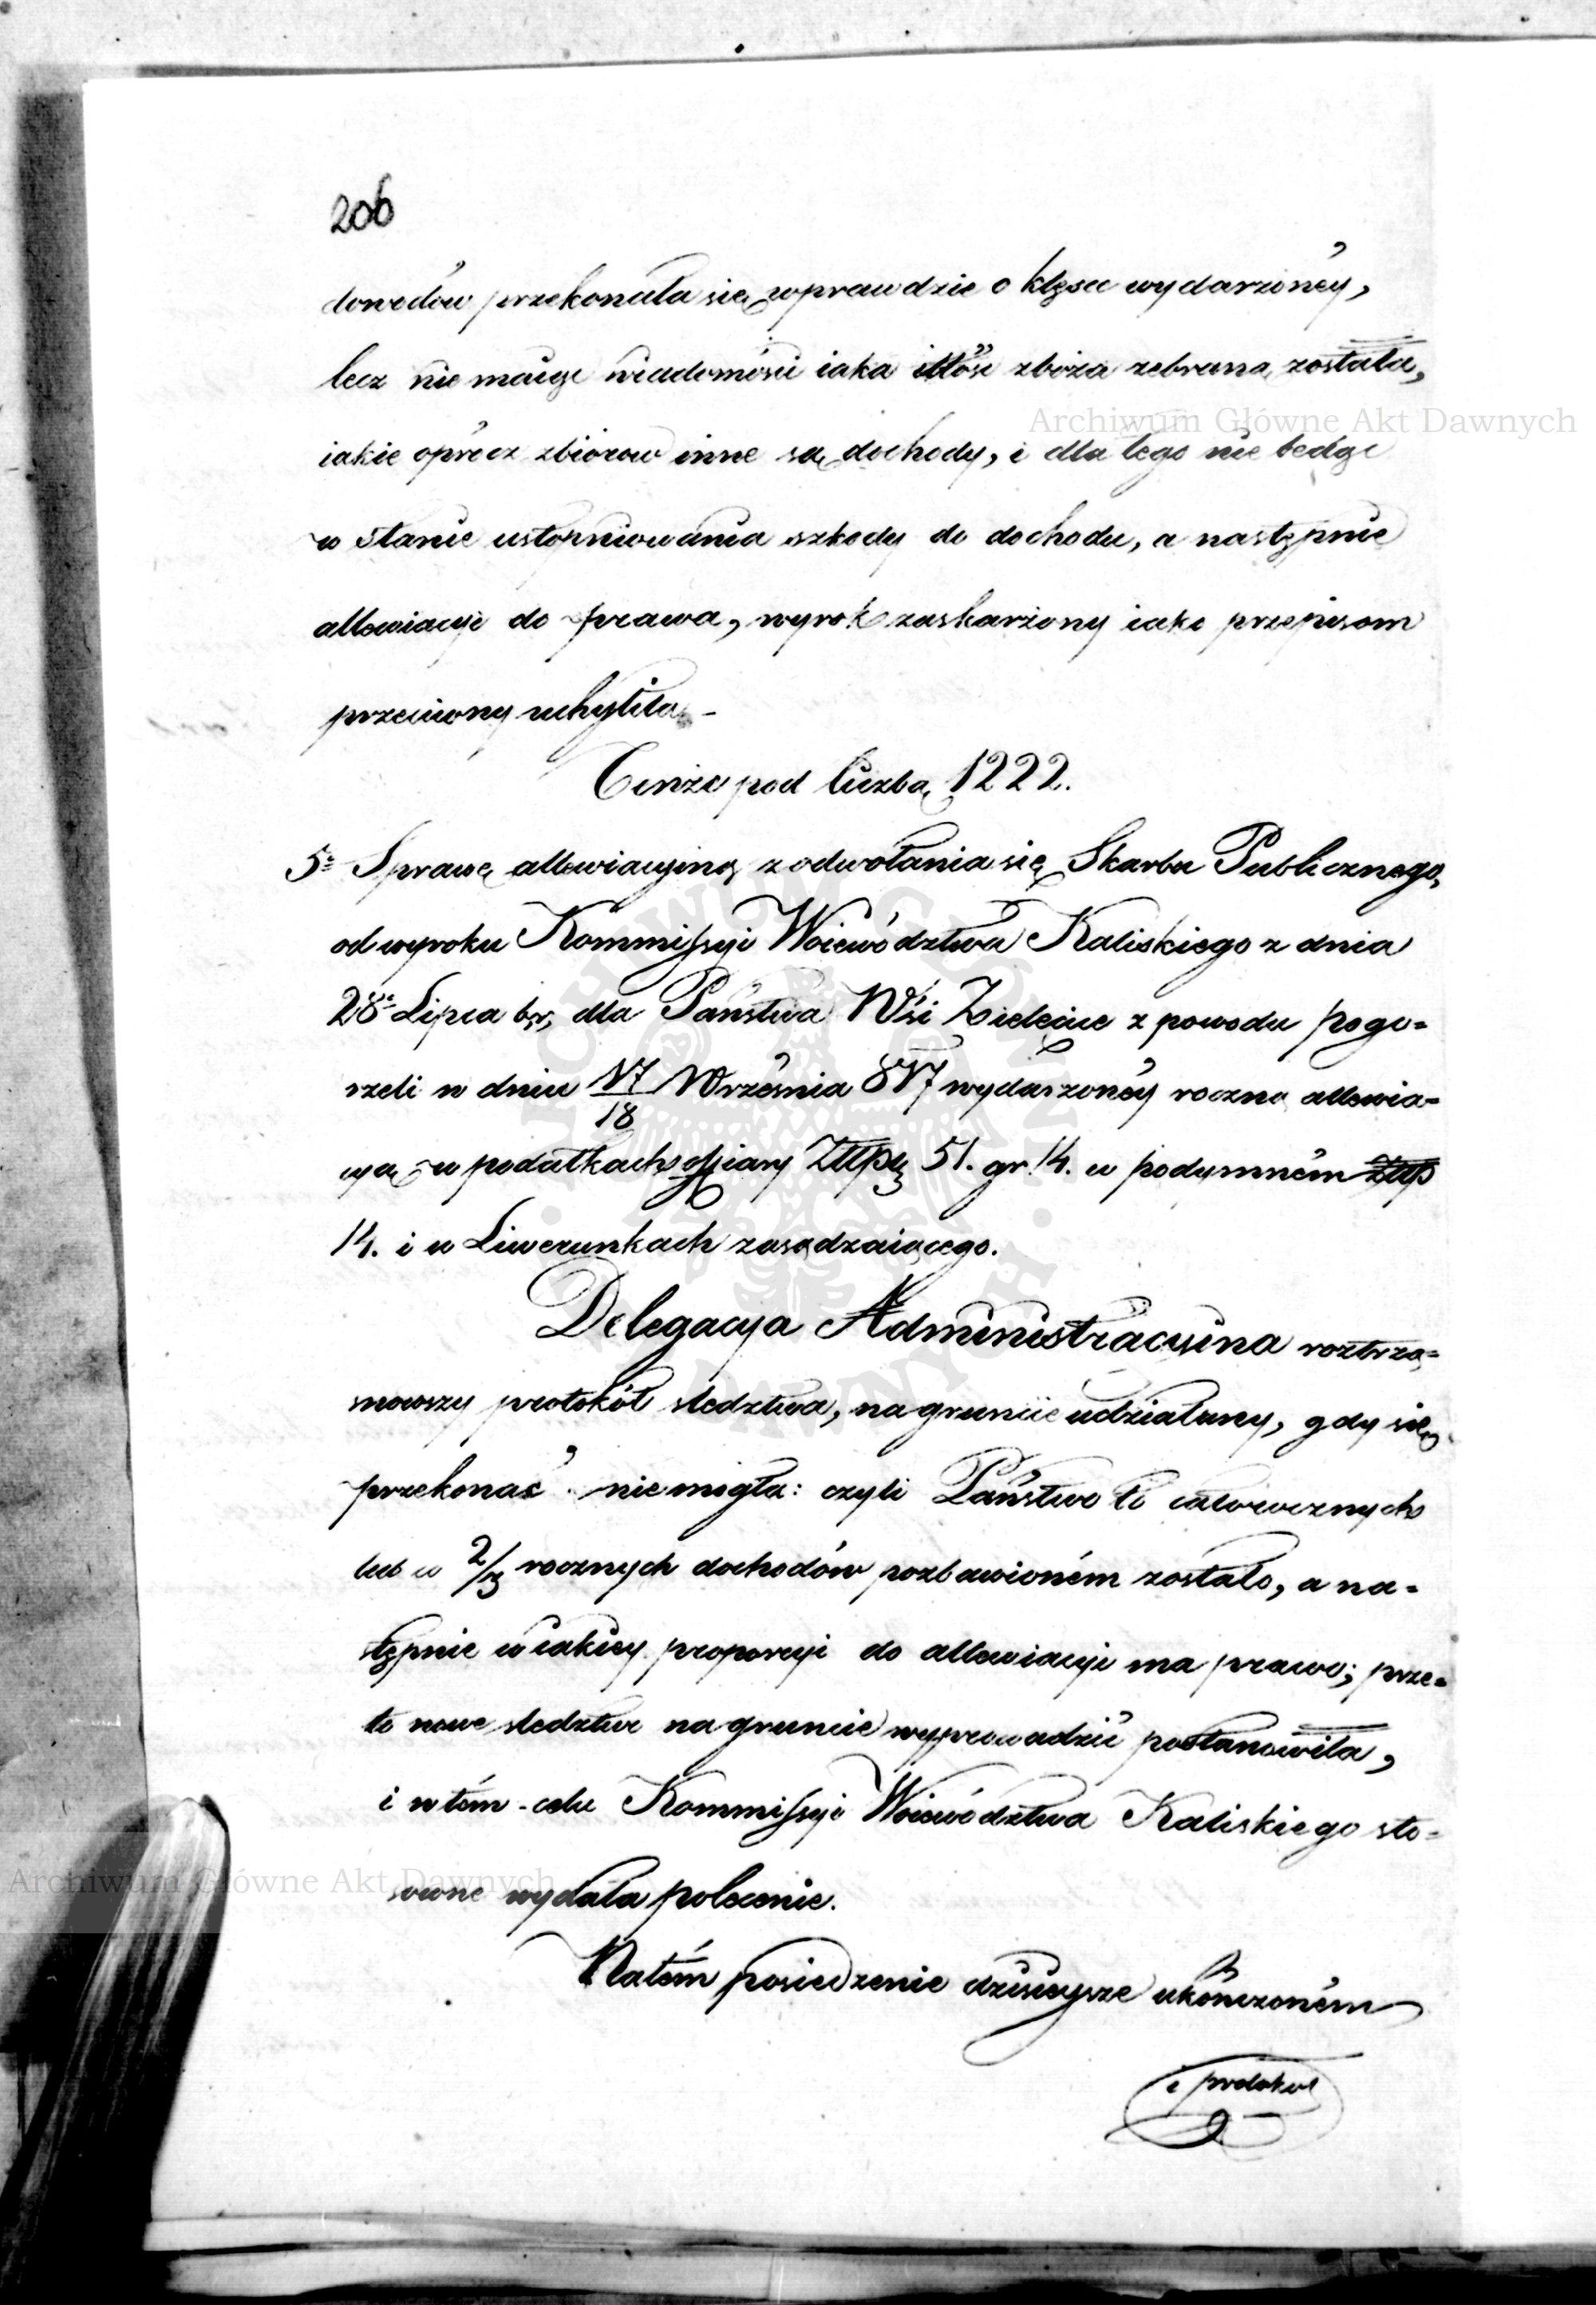 206
dowodów przekonała się wprawdzie o klęsce wydarzonéy,
lecz nie maiąc wiadomości iaka ilłość zboża zebraną została,
iakie oprócz zbiorow inne są dochody, i dla tego nie będąc
w stanie ustopniowania szkody do dochodu, a następnie
allewiacyi do prawa, wyrok zaskarżony iako przepisom
przeciwny uchyliła. -
Taż pod liczbą 1222.
5º Sprawę allewiacyiną z odwołania się Skarbu Publicznego,
od wyroku Kommissyi Woiewództwa Kaliskiego z dnia
28º Lipca br, dla Państwa Wsi Zielęcice z powodu pogo=
rzeli w dniu 17/18 Września 817 wydarzonéy roczną allewia=
cyą w podatkach ofiary Złłp 51. gr. 14. w podymném Złłp
14. i w Liwerunkach zasądzaiącego.
Delegacya Administracyina roztrzą=
snąwszy protokół sledztwa, na gruncie udziałany, gdy się
przekonać nie mogła: czyli Państwo to całorocznych
lub w 2/3 rocznych dochodów pozbawioném zostało, a na=
stępnie w iakiey proporcyi do allewiacyi ma prawo; prze=
to nowe sledztwo na gruncie wyprowadzić postanowiła,
i w tém celu Kommissyi Woiewództwa Kaliskiego sto=
sowne wydała polecenie.
Na tém posiedzenie dzisieysze ukończoném
i protokuł
Archiwum Główne Akt Dawnych
Archiwum Główne Akt Dawnych
ARCHIWUM GŁÓWNE AKT DAWNYCH